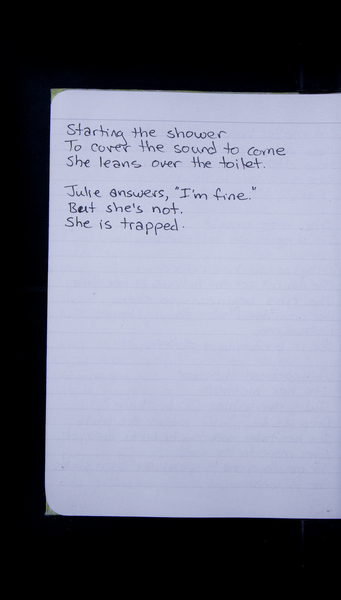 Starting the shower
To cover the sound to come
She leans over the toilet.
Julie answers, "I'm fine."
But she's not.
She is trapped.